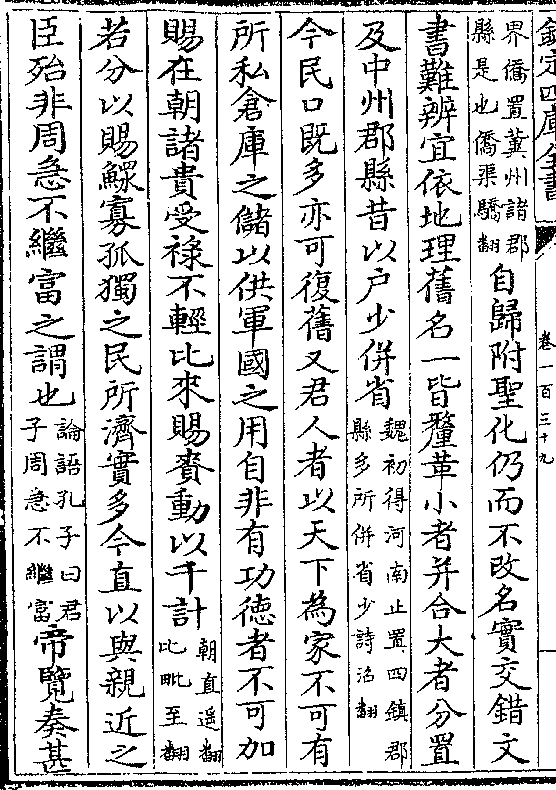 欽定四庫全書
卷一百三十九
界僑置冀州諸郡
縣是也僑渠驕翻
自歸附聖化仍而不改名實交錯文
書難辨宜依地理舊名一皆釐革小者并合大者分置
及中州郡縣昔以户少併省
魏初得河南止置四鎮郡
縣多所併省少詩沼翻
今民口既多亦可復舊又君人者以天下為家不可有
所私倉庫之儲以供軍國之用自非有功德者不可加
賜在朝諸貴受禄不輕比來賜賚動以千計
朝直遥翻
比毗至翻
若分以賜鰥寡孤獨之民所濟實多今直以與親近之
臣殆非周急不繼富之謂也
論語孔子曰君
子周急不繼富
帝覽奏甚